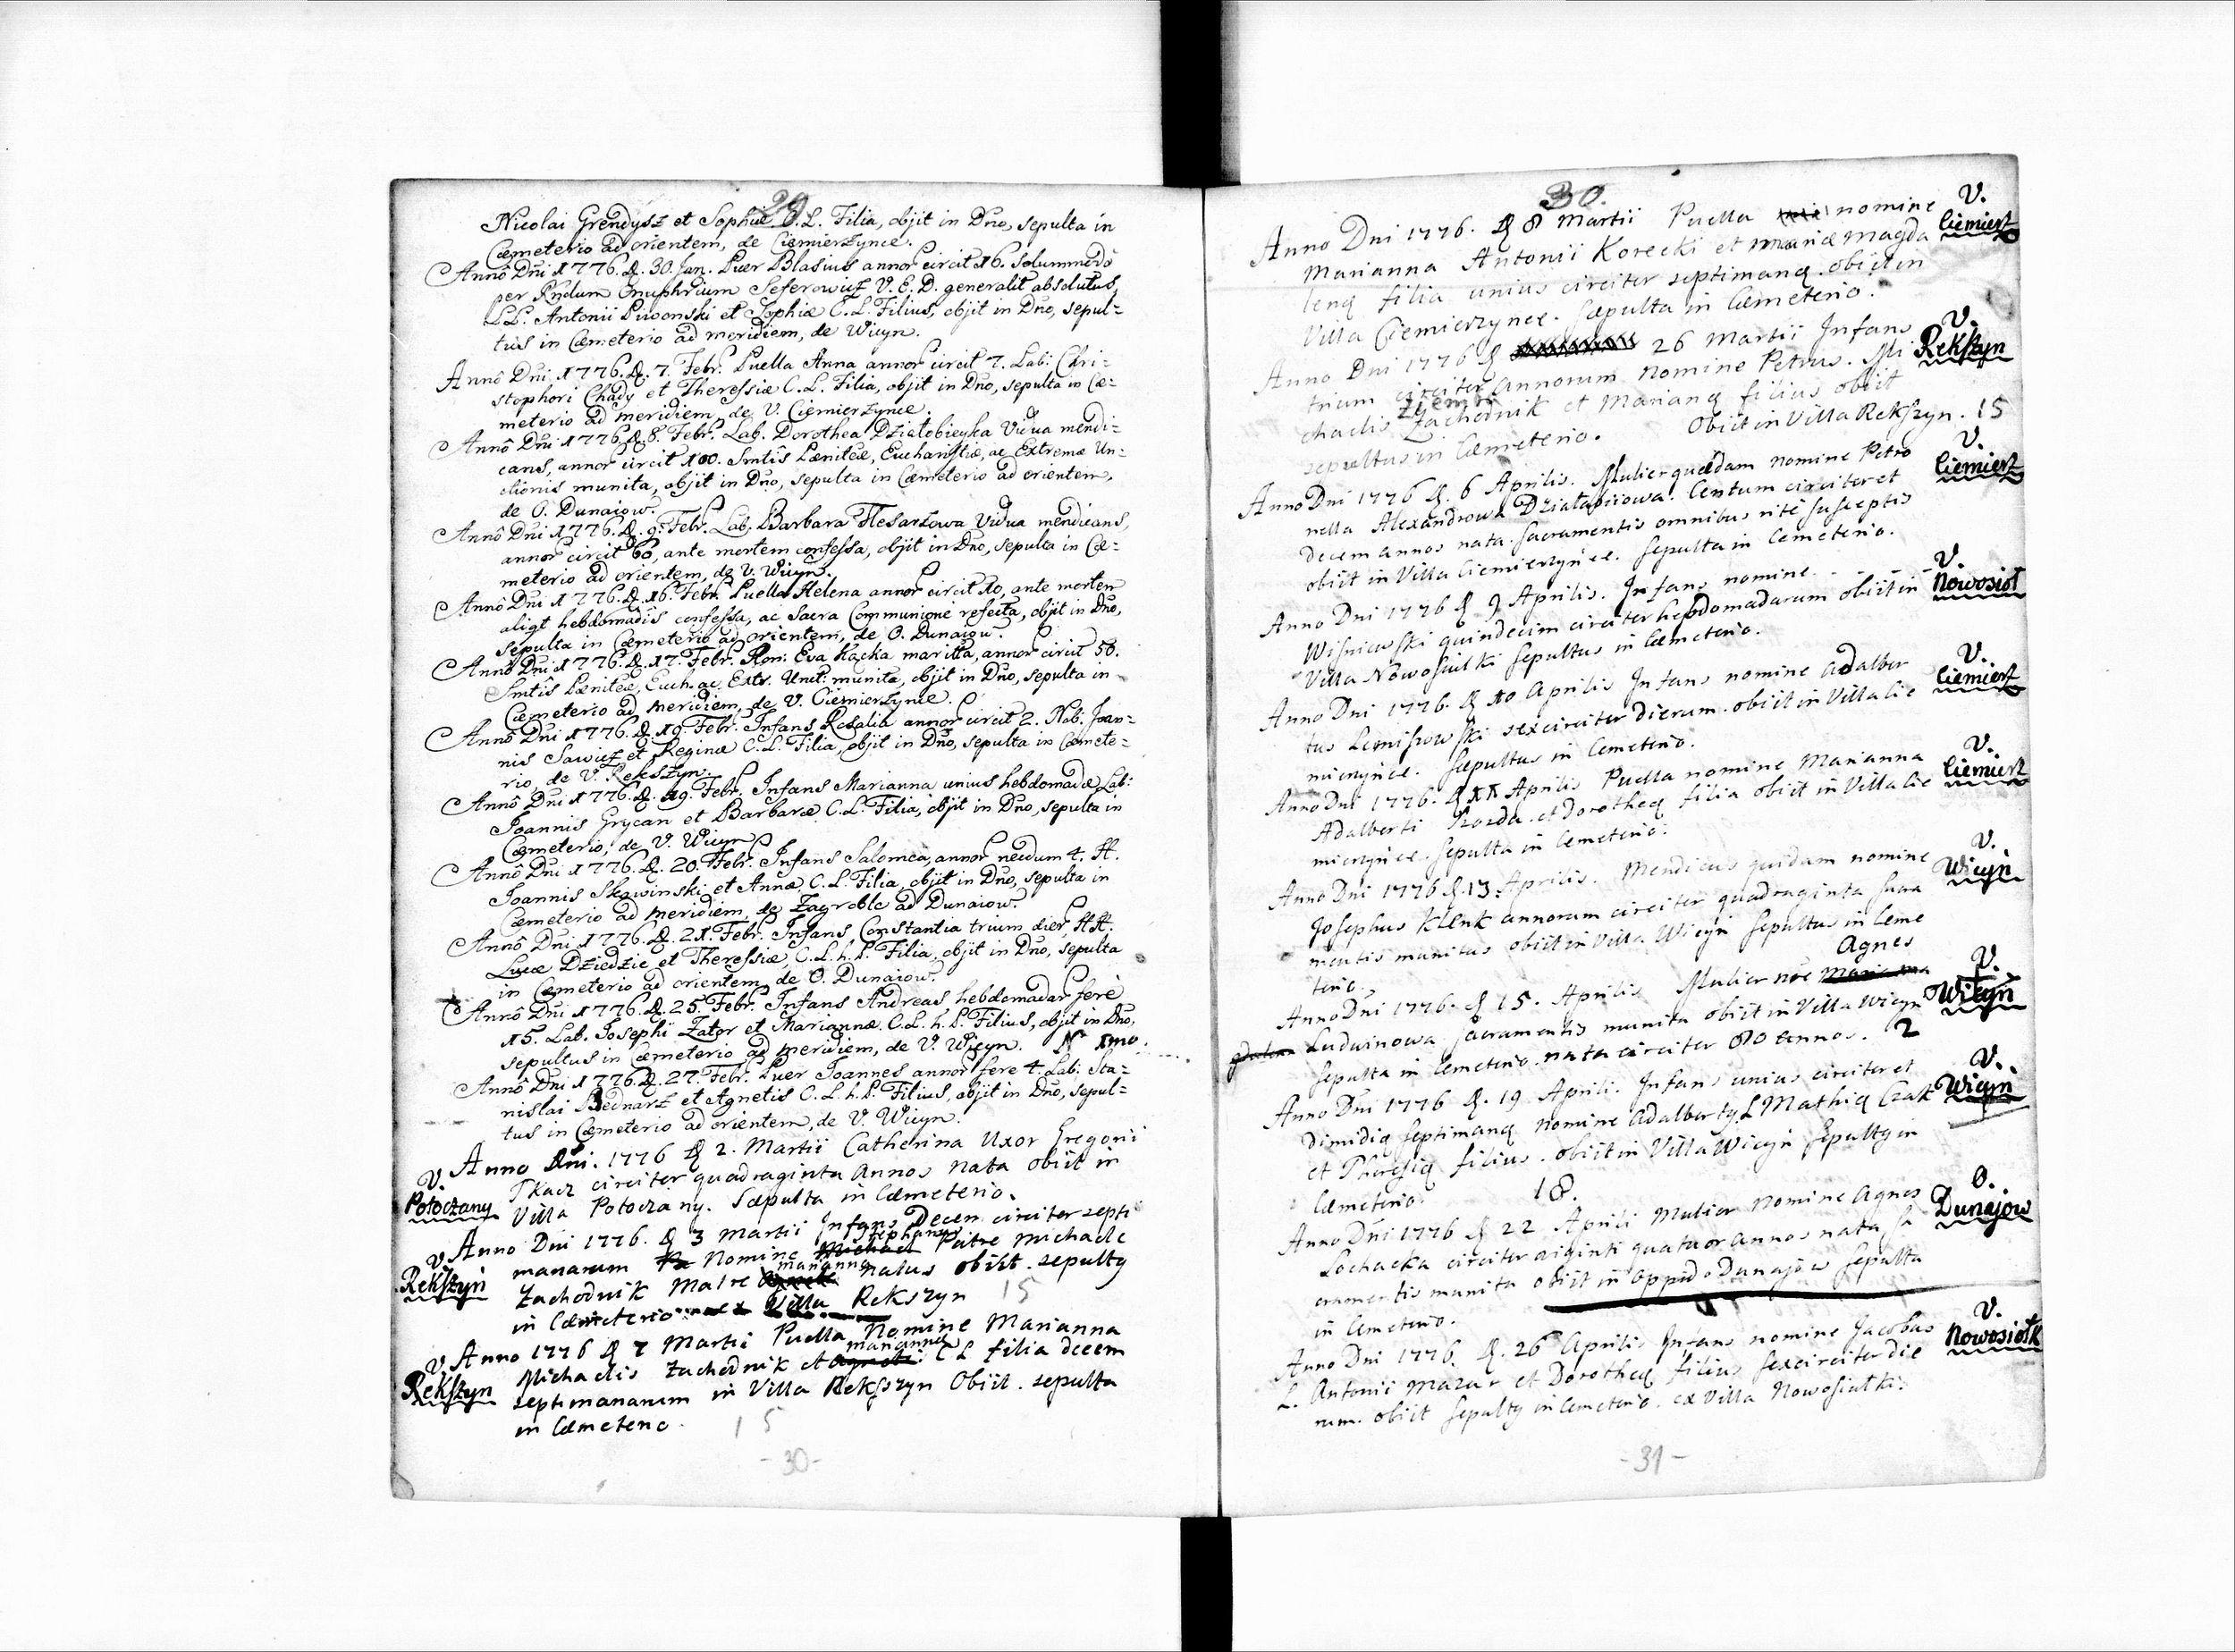 29
Nicolai Grendysz et Sophiæ C.L. Filia, objit in Dño, sepulta in
Cæmeterio ad orientem, de Ciemierzynce.
Annô Dñi 1776. D. 30. Jan. Puer Blasius annor circit 16. solummodo
per Rndum Onuphrium Seferowicz V. E. D. generalit absolutus,
LL. Antonii Piwonski et Sophiæ C.L. Filius, objit in Dño, sepul=
tus in Cæmeterio ad meridiem, de Wicyn.
Annô Dñi 1776. D. 7. Febr. Puella Anna annor circit 7. Lab: Chri=
stophori Chady et Theressiæ C.L. Filia, objit in Dño, sepulta in Cæ=
meterio ad meridiem, de V. Ciemierzynce.
Annô Dñi 1776. D. 8. Febr. Lab. Dorothea Działobieyka Vidua mendi=
cans, annor circit 100. Smtis Pænitæ, Eucharistiæ, ac Extremæ Un=
ctionis munita, objit in Dño, sepulta in Cæmeterio ad orientem,
de O. Dunaiow.
Annô Dñi 1776. D. 9. Febr. Lab. Barbara Slesarzowa Vidua mendicans,
annor circit 60, ante mortem confessa, objit in Dño, sepulta in Cæ=
meterio ad orientem, de V. Wicyn.
Annô Dñi 1776. D. 16. Febr. Puella Helena annor circit 10, ante mortem
aliqt hebdomadis confessa, ac Sacra Communione refecta, objit in Dño,
sepulta in Cæmeterio ad orientem, de O. Dunaiow.
Annô Dñi 1776. D. 17. Febr. Hon: Eva Kącka maritta, annor circit 50.
Smtis Pænitæ, Euch. ac Extr. Unct: munita, objit in Dño, sepulta in
Cæmeterio ad meridiem, de V. Ciemierzynce.
Annô Dñi 1776. D. 19. Febr. Infans Rosalia annor circit 2. Nob: Joan=
nis Sawicz et Reginæ C.L. Filia, objit in Dño, sepulta in Cæmete=
rio, de V. Rekszyn.
Annô Dñi 1776. D. 19. Febr. Infans Marianna unius hebdomadæ Lab:
Joannis Grycan et Barbaræ C.L. Filia, objit in Dño, sepulta in
Cæmeterio, de V. Wicyn
Annô Dñi 1776. D. 20. Febr. Infans Salomea, annor necdum 4. H.
Joannis Skawinski et Annæ C.L. Filia, objit in Dño, sepulta in
Cæmeterio ad meridiem, de Zagroble ad Dunaiow.
Annô Dñi 1776. D. 21. Febr. Infans Constantia trium dier, HH.
Lucæ Dziedzic et Theressiæ, C.L.h.P. Filia, objit in Dño, sepulta
in Cæmeterio ad orientem, de O. Dunaiow.
Annô Dñi 1776. D. 25. Febr. Infans Andreas hebdomadar fere
15. Lab. Josephi Zator et Mariannæ C.L.h.P. Filius, objit in Dño,
sepultus in Cæmeterio ad meridiem, de V. Wicyn.
Annô Dñi 1776. D. 27. Febr. Puer Joannes annor fere 4. Lab: Sta=
nislai Bednarz et Agnetis C.L.h.P. Filius, objit in Dño, sepul=
tus in Cæmeterio ad orientem, de V. Wicyn.
Anno Dni. 1776 D 2. Martii Catherina Uxor Gregorii
V. Potoczany
Tkacz circiter quadraginta annos nata obiit in
Villa Potoczany. Sæpulta in Cæmeterio.
Anno Dni 1776. D 3 Martii Infans Decem circiter septi
V. Rekszyn
manarum Nomine Michael Stephanus Patre Michaele
Zachodnik Matre marianna natus obiit. sepulty
in Cæmeterio ex Villa Rekszyn 15
Anno 1776 D 7 Martii Puella Nomine Marianna
V. Rekszyn
Michaelis Zachodnik et agneti marianna C L filia decem
septimanarum in Villa Rekszyn Obiit. sepulta
in Cæmeterio. 15
-30-
30.
Anno Dni 1776. D 8 Martii Puella nomine
V. Ciemierz
Marianna Antonii Korecki et mariæ Magda
lenę filia unius circiter septimanę. obiit in
Villa Ciemierzynce. Sæpulta in Cæmeterio.
Anno Dni 1776 D 26 Martii Infans
V. Rekszyn
trium circiter annorum nomine Petrus. Mi
chaelis Zachodnik et Mariannę filius obiit
sepultus in Cæmeterio. Obiit in Villa Rekszyn. 15
Anno Dni 1776 D. 6 Aprilis. Mulier quædam nomine Petro
V. Ciemierz
nella Alexandrowa Działabiiowa. Centum circiter et
decem annos nata. sacramentis omnibus rite susceptis
obiit in Villa Ciemierzynce. Sepulta in Cemeterio.
Anno Dni 1776 D 9 Aprilis. Infans nomine - - - -
V. Nowosioł
Wisniewski quindecim circiter hebdomadarum obiit in
Villa Nowosiulki Sepultus in Cæmeterio.
Anno Dni 1776. D 10 Aprilis Infans nomine Adalber
V. Ciemierz
tus Leniszowski sex circiter dierum. obiit in Villa Cie
mierzynce. Sæpultus in Cemeterio.
Anno Dni 1776. D 11 Aprilis Puella nomine Marianna
V. Ciemierz
Adalberti et Dorothęę filia obiit in Villa Cie
mierzynce. Sepulta in Cemeterio.
Anno Dni 1776 D. 13. Aprilis. Mendicus quidam nomine
V. Wicyn
Josephus Klenk annorum circiter quadraginta sacra
mentis munitus obiit in Villa Wicyn Sepultus in Ceme
terio.
Anno Dni 1776. D 15. Aprilis Mulier noe Marianna Agnes
V. Wicyn
Ludwinowa sacramentis munita obiit in Villa Wicyn
Sepulta in Cemeterio. nata circiter 80 annos. 2
Anno Dni 1776 D. 19 Aprili. Infans unius circiter et
V. Wicyn
dimidię septimanę nomine Adalberty. L Mathię Czak
et Theresię filius. obiit in Villa Wicyn Sepulty in
Cæmeterio. 18.
Anno Dni 1776 D 22 Aprili Mulier nomine Agnes
O. Dunajow
Lochacka circiter viginti quatuor annos nata sa
cramentis munita obiit in Oppido Dunajow Sepulta
in Cemeterio.
Anno Dni 1776. D. 26 Aprilis Infans nomine Jacobus
V. Nowosiołk
L. Antonii Mazur et Dorothęę filius sex circiter die
rum. obiit Sepulty in Cemeterio. ex Villa Nowosiułki.
-31-